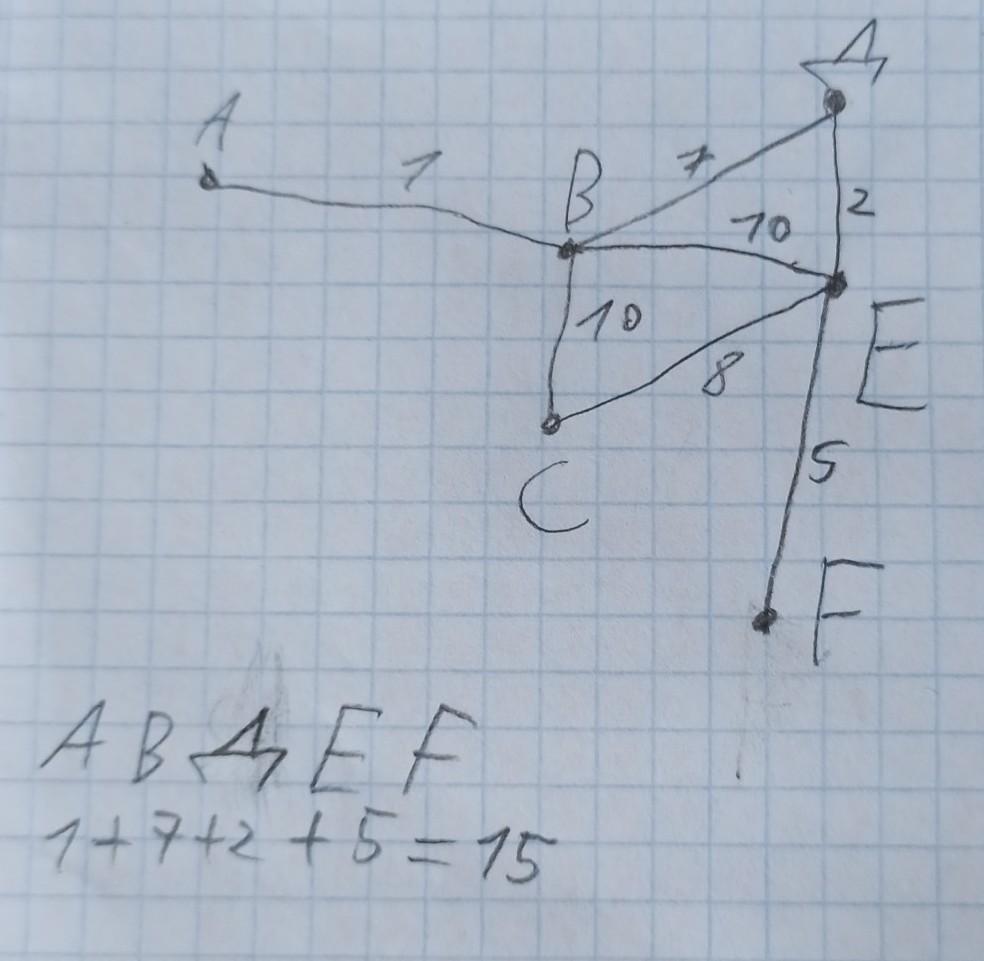 Д
A
1
B
7
2
10
10
E
8
C
5
F
A B Д E F
1+7+2+5=15